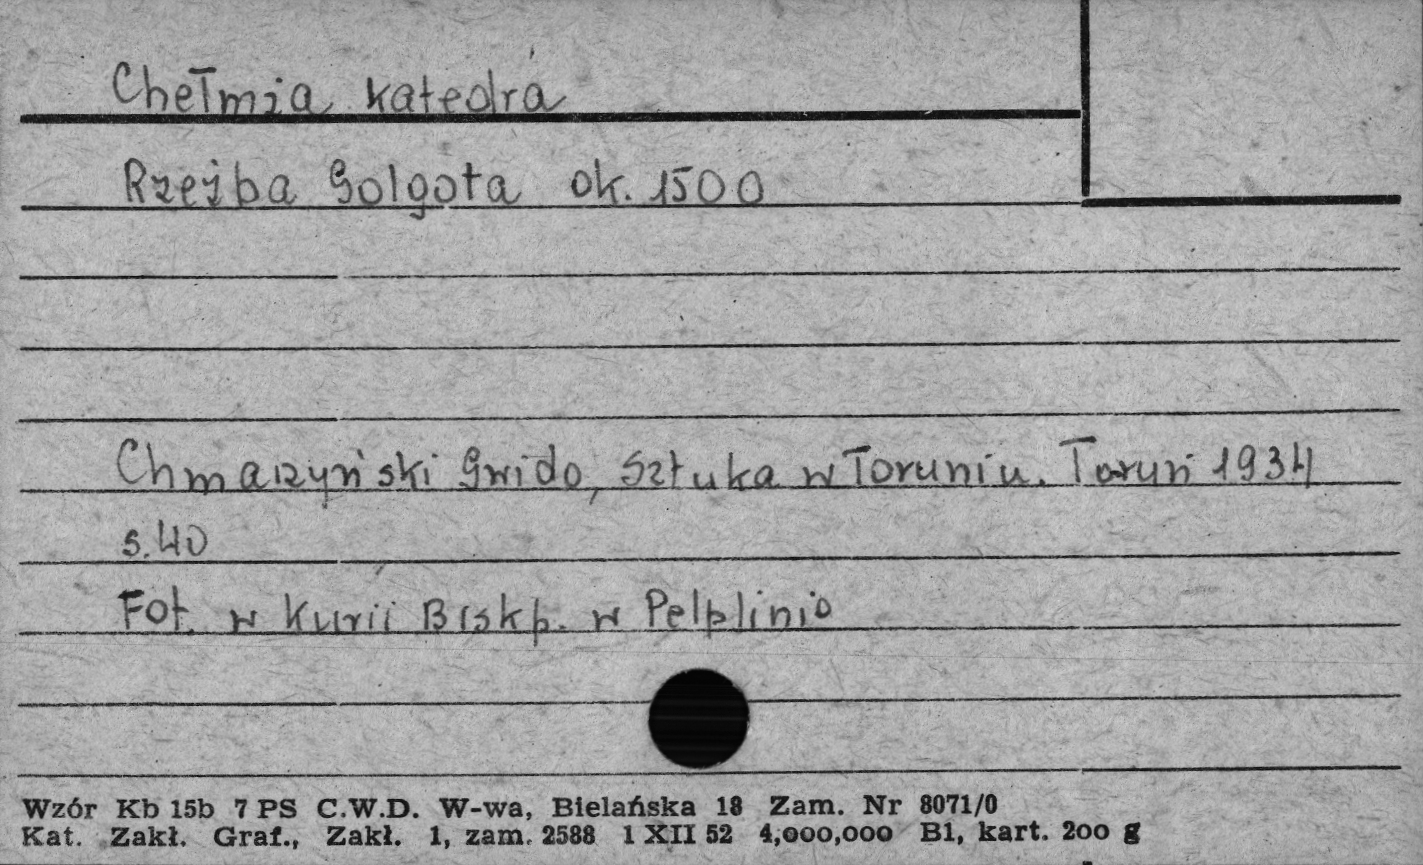 Chełmża katedra
Rzeźba Golgota ok. 1500
Chmarzyński Gwido, Sztuka w Toruniu. Toruń 1934
s. 40
Fot. w Kurii Biskp. w Pelplinie
Wzór Kb 15b 7 PS C.W.D. W-wa, Bielańska 18 Zam. Nr 8071/0
Kat. Zakł. Graf., Zakł. 1, zam. 2588 1 XII 52 4,000,000 B1, kart. 200 g